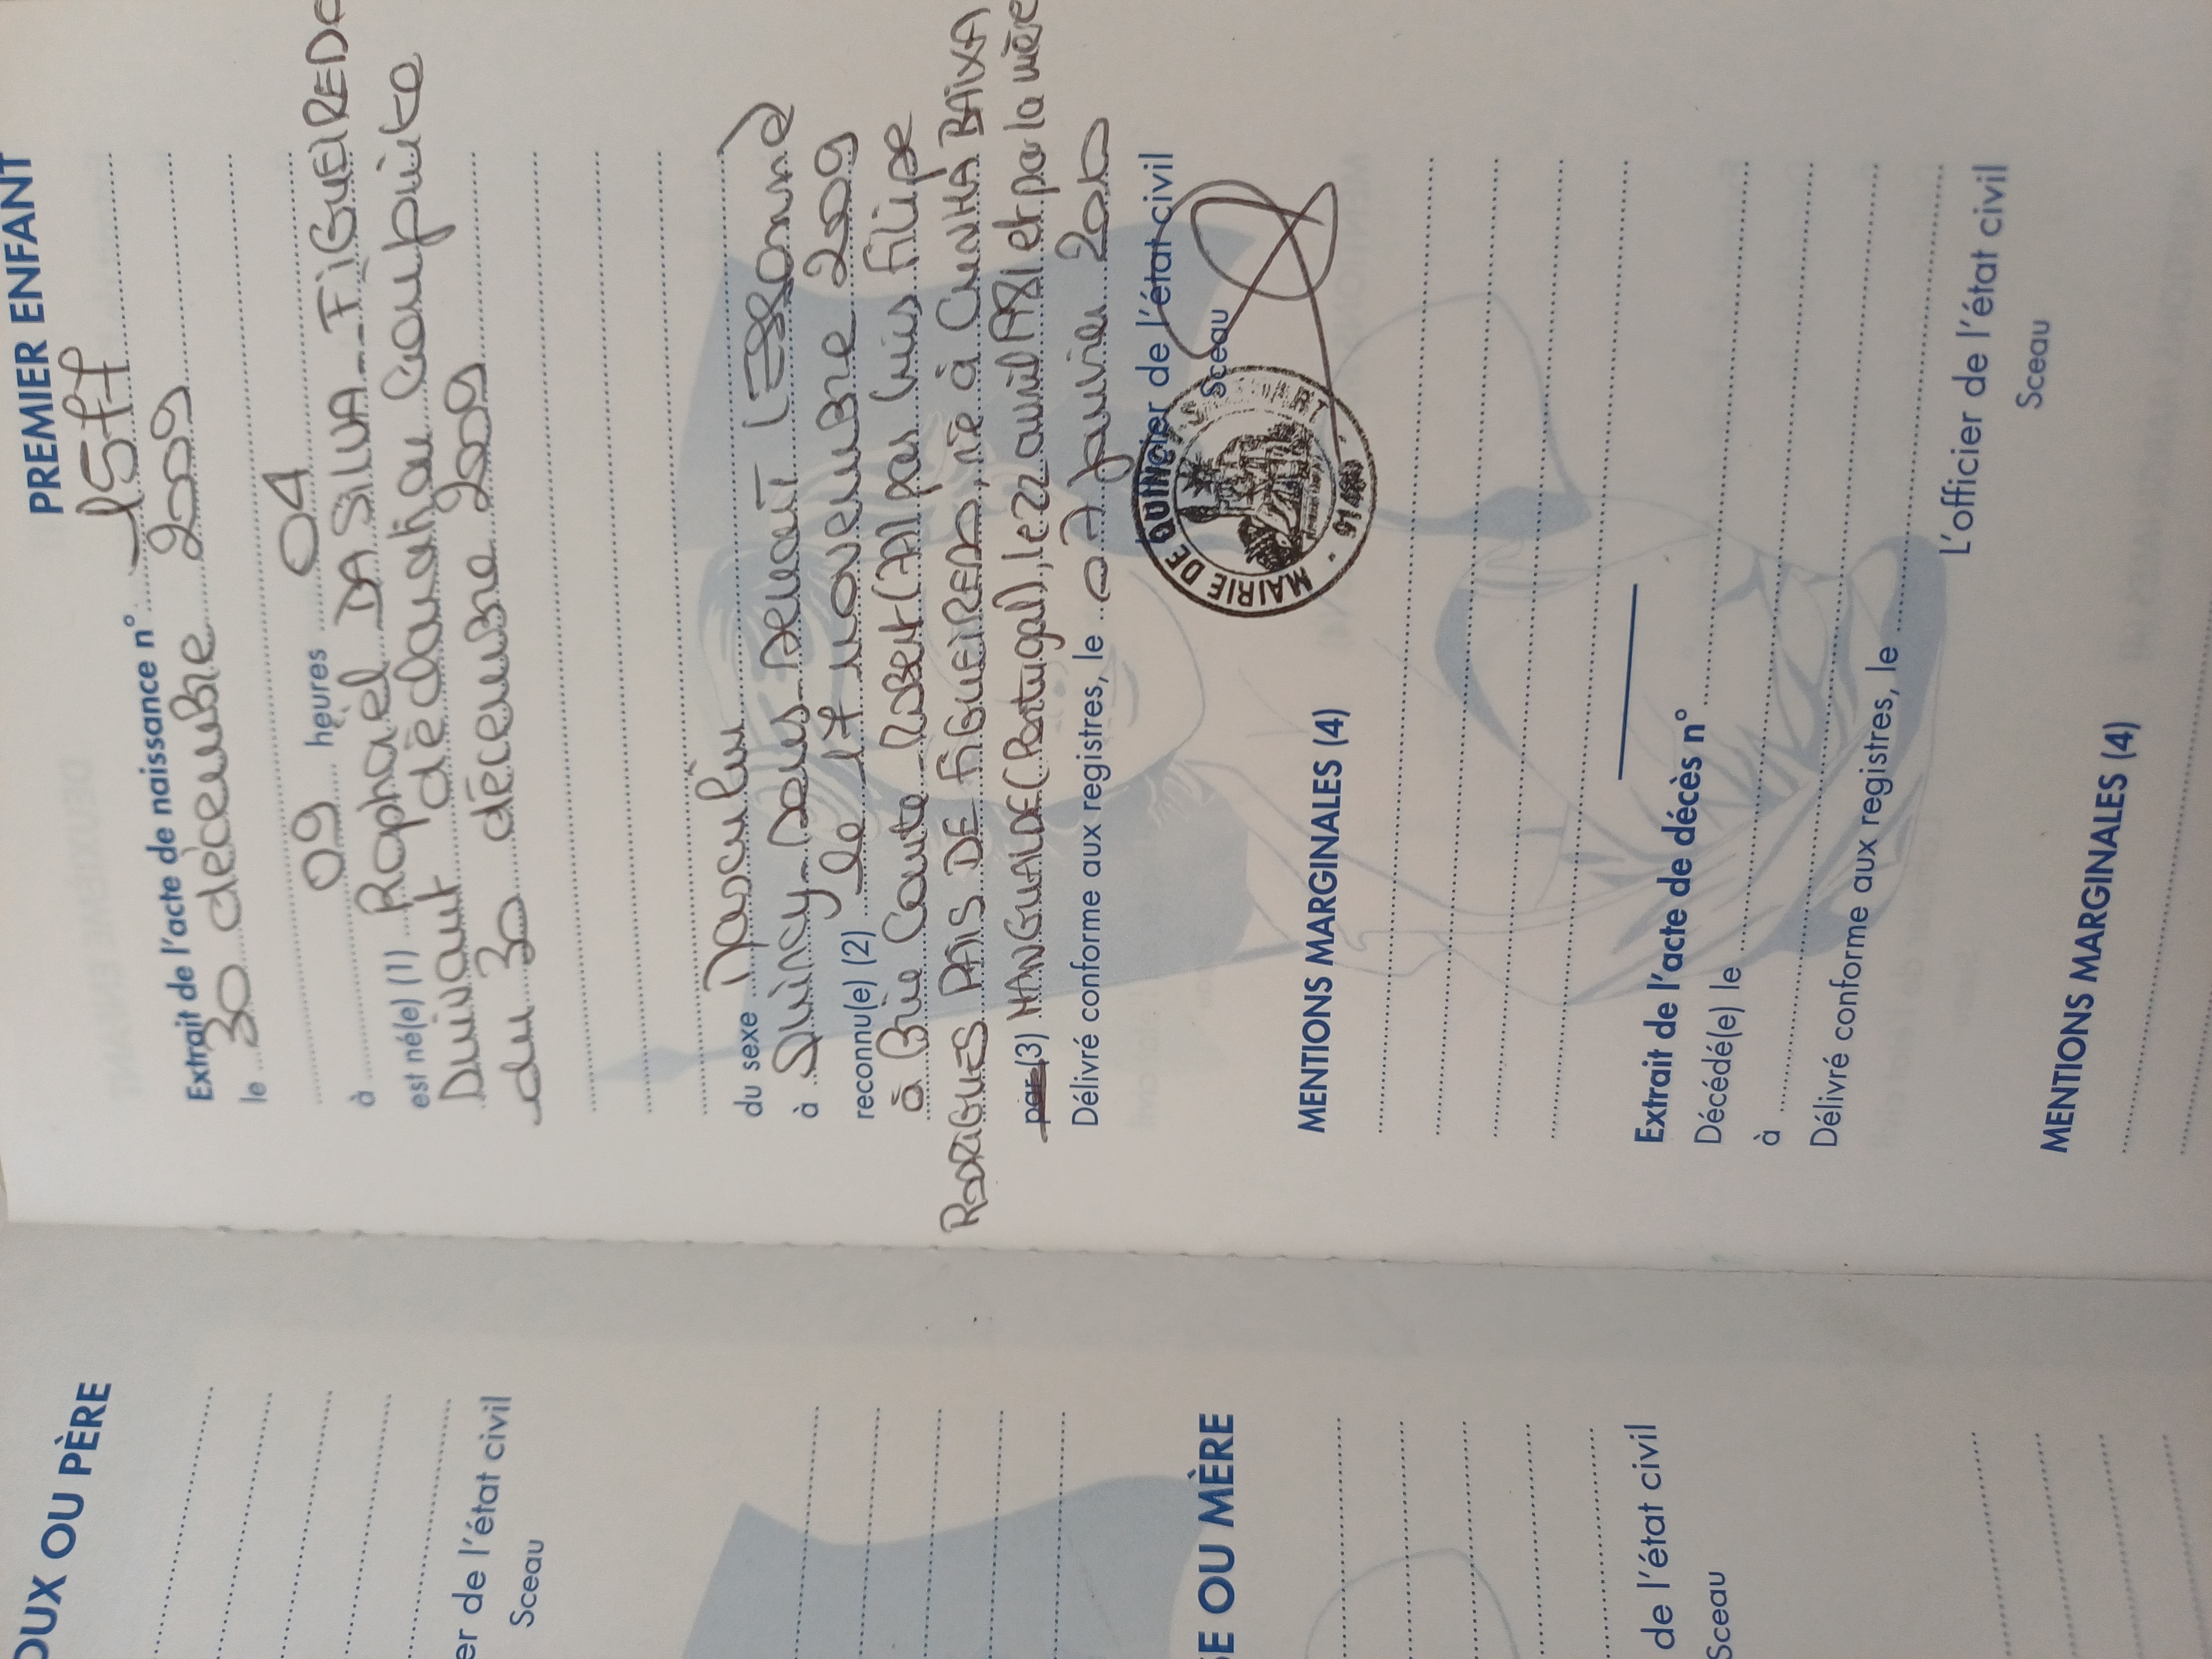 PREMIER ENFANT
Extrait de l'acte de naissance n° 1577
le 30 décembre 2009
à 09 heures 04
est né(e) (1) Raphael DA SILVA--FIGUEIREDO
Suivant déclaration conjointe
du 30 décembre 2009
du sexe Masculin
à Quincy-Sous-Sénart (Essonne)
reconnu(e) (2) le 17 novembre 2009
à Brie Comte Robert (77) par Luis Filipe
RODRIGUES PAIS DE FIGUEIREDO, né à CUNHA BAIXA
par (3) MANGUALDE (Portugal), le 22 avril 1981 et par la mère
Délivré conforme aux registres, le 07 janvier 2010
L'officier de l'état civil
Sceau
MAIRIE DE QUINCY S SENART - 91480
MENTIONS MARGINALES (4)
Extrait de l'acte de décès n°
Décédé(e) le
à
Délivré conforme aux registres, le
L'officier de l'état civil
Sceau
MENTIONS MARGINALES (4)
OUX OU PÈRE
er de l'état civil
Sceau
SE OU MÈRE
de l'état civil
Sceau